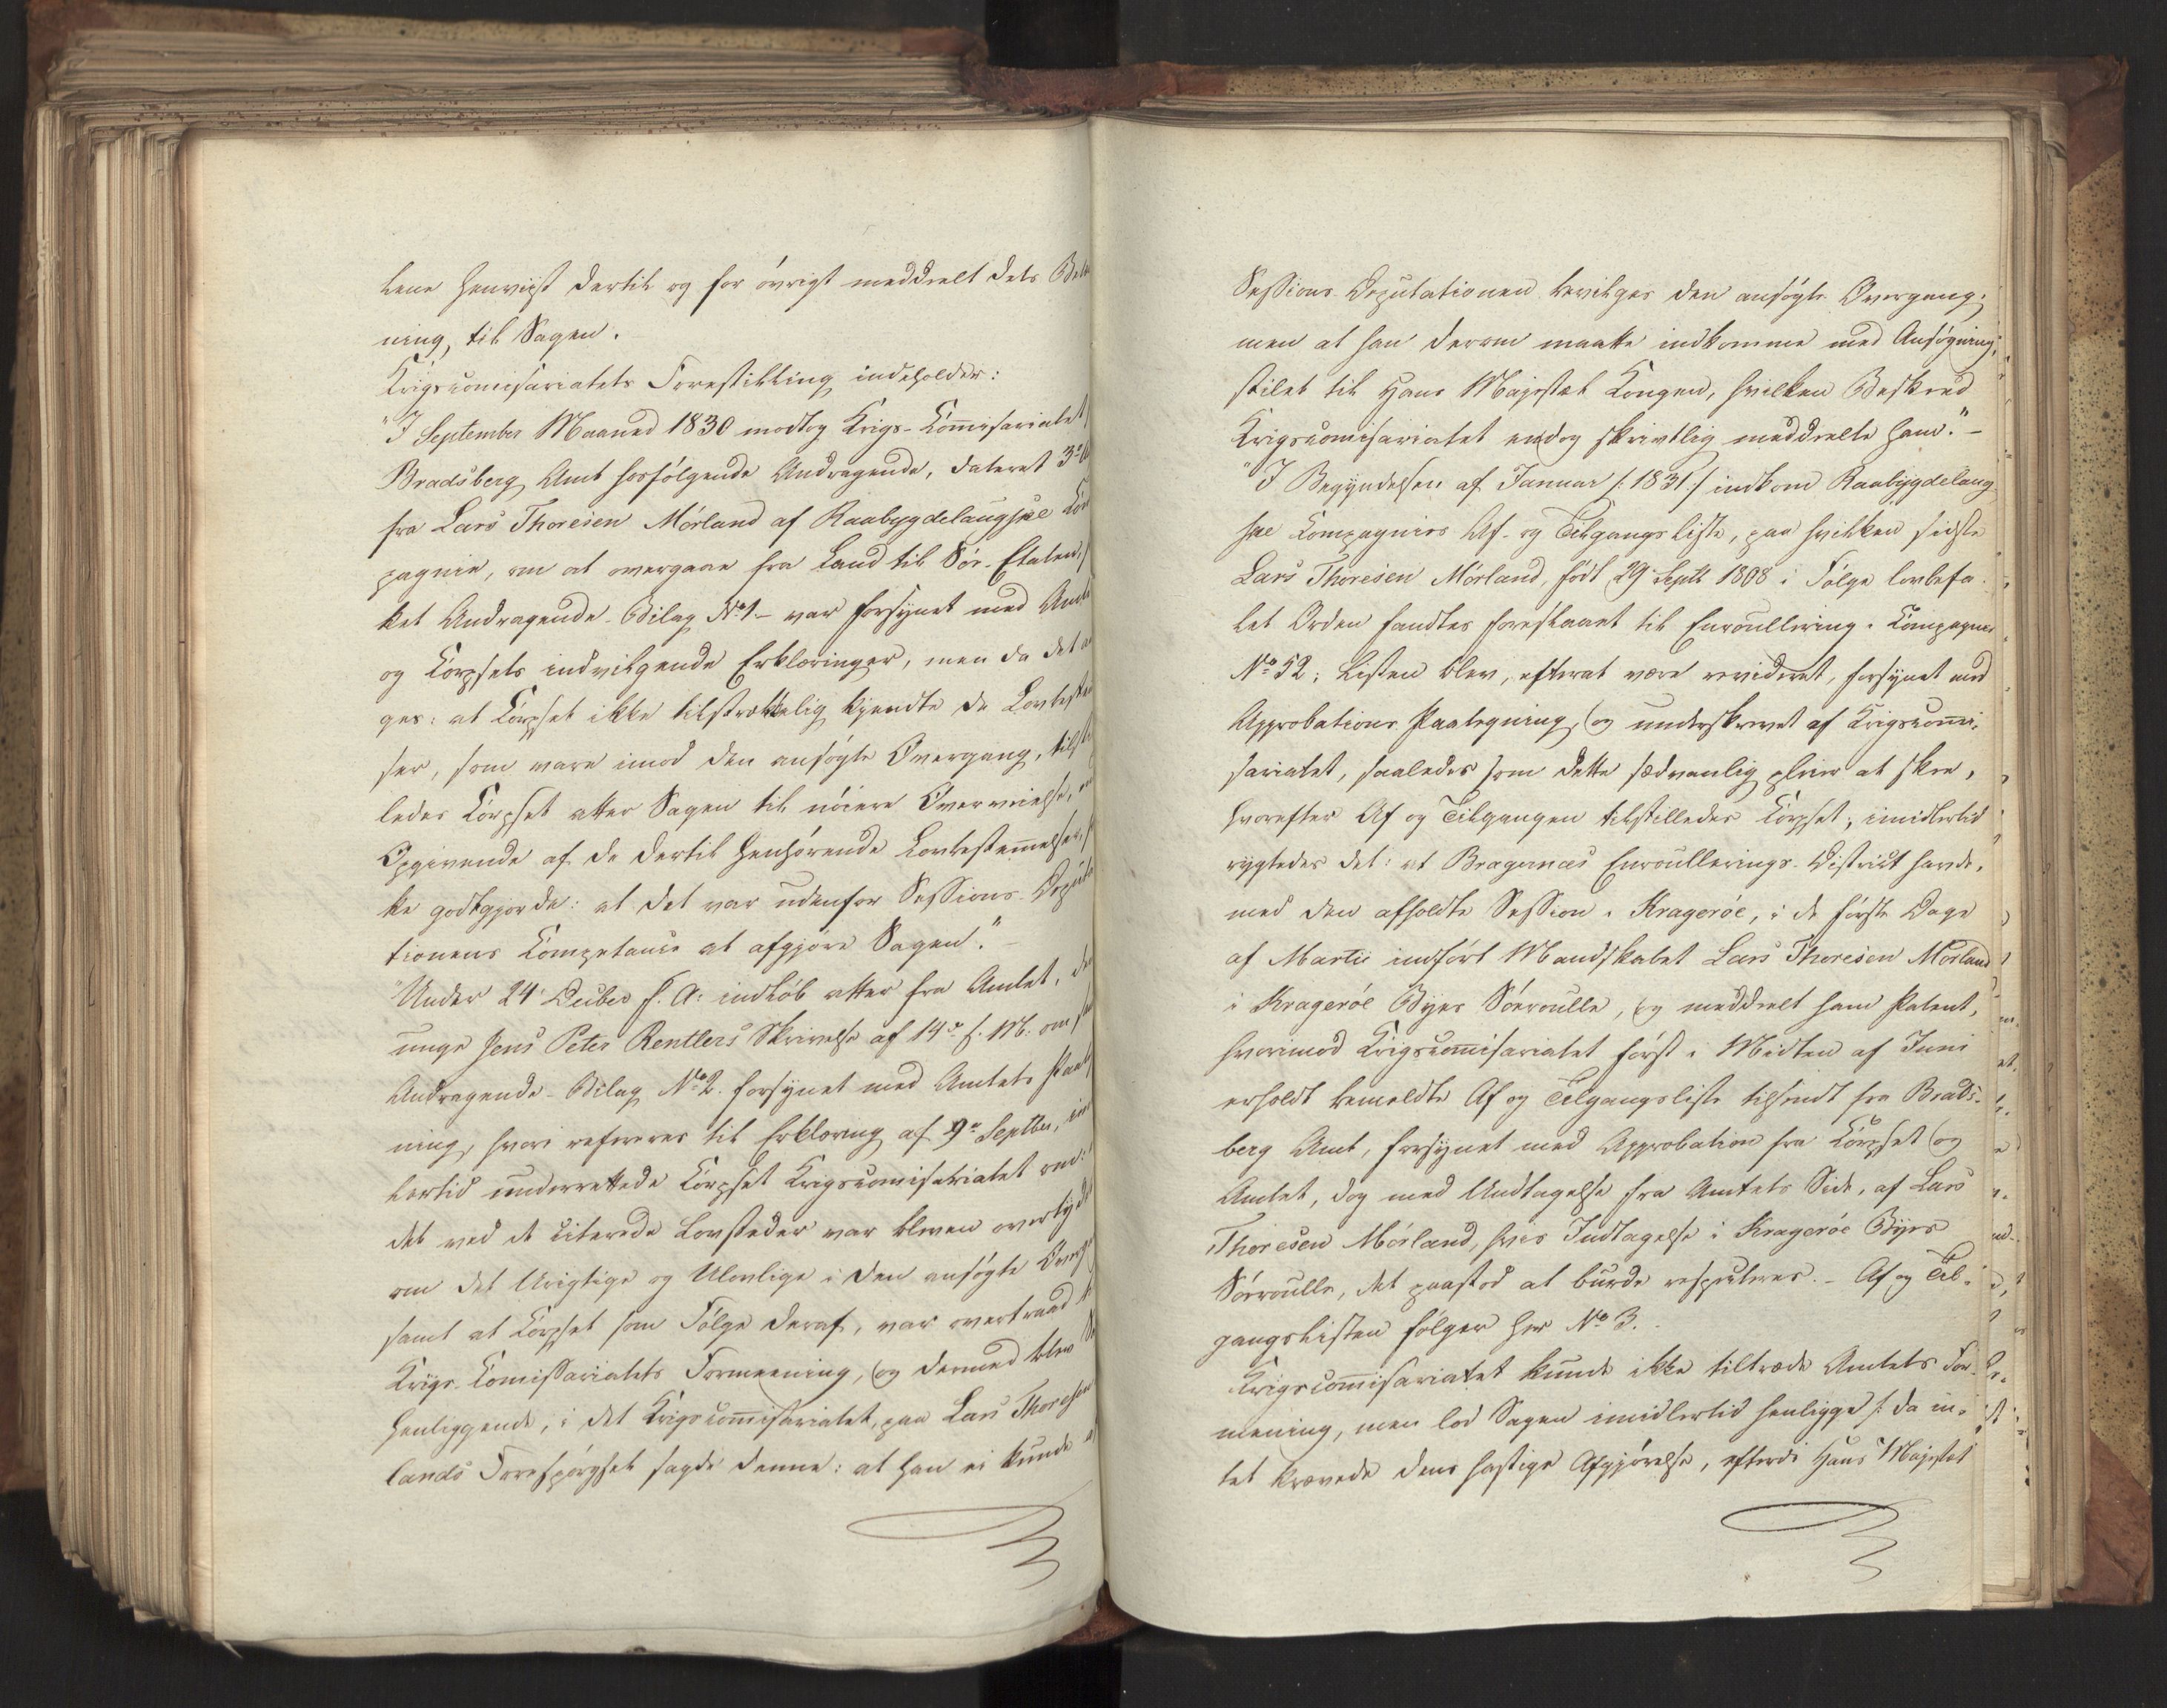 lene henviist dertil og for øvrigt meddeelt dets Be
ning, til Sagen.
Krigscomisariatets Forestilling indeholder:
"I September Maaned 1830 modtog Krigs-Kommisariatet
Bradsberg Amt hosfølgende Andragende, dateret 3die
fra Lars Thoresen Mørland af Raabygdelaugske Kom
pagnie, om at overgaae fra Land til Søe-Etaten,
ket Andragende-Bilag No 1- var forsynet med Amtets
og Korpsets indvilgende Erklæringer, men da det
ges: at Korpset ikke tilstrækkelig kjendte de Lovbestem
ser, som vare imod den ansøgte Overgang, tilstil
ledes Korpset atter Sagen til nøiere Overveielse,
Opgivende af de dertil henhørende Lovbestemmelser,
ke godtgjorde: at det var udenfor Sessions-Deputa
tionens Kompetance at afgjøre Sagen."-
"Under 24de Decbr f. A. indløb atter fra Amtet, den
unge Jens Peter Rentlers Skrivelse af 14de s. M. om
Andragende-Bilag No 2. forsynet med Amtets Paateg
ning, hvori refereres til Erklæring af 9de Septbr, imid
lertid underrettede Korpset Krigscomisariatet om:
det ved de citerede Lovsteder var bleven overtydet
om det Urigtige og Ulovlige i den ansøgte Overgang
samt at Korpset som Følge deraf, var overtraad
Krigs-Komissariatets Formeening, og dermed blev
henliggende, i det Krigscommisariatet, paa Lars Thoresen
lands Forespørgsel sagde denne: at han ei kunde
Sessions-Deputationen bevilges den ansøgte Overgang,
men at han derom maatte indkomme med Ansøgning,
stilet til Hans Majestæt Kongen, hvilken Beskeed
Krigscomisariatet endog skrivtlig meddeelte ham."-
"I Begyndelsen af Januar /:1831:/ indkom Raabygdelaug
ske Kompagnies Af- og Tilgangsliste, paa hvilken sidste
Lars Thoresen Mørland, født 29 Septb 1808 i Følge lovbefa
let Orden fandtes foreslaaet til Enroullering i Kompagniet
No 52; Listen blev, efterat være revideret, forsynet med
Approbations Paategning, og underskrevet af Krigscommi,
sariatet, saaledes som dette sædvanlig pleier at skee,
hvorefter Af og Tilgangen tilstilledes Korpset; imidlertid
rygtedes det: at Bragernæs Enroullerings-District havde,
med den afholdte Session i Kragerøe, i de første Dage
af Martii indført Mandskabet Lars Thoresen Mørland
i Kragerøe Byes Søeroulle, og meddeelt ham Patent,
hvorimod Krigscommisariatet først i Midten af Juni
erholdt bemeldte Af og Tilgangsliste tilsendt fra Brads-
berg Amt, forsynet med Approbation fra Korpset og
Amtet, dog med Undtagelse fra Amtets Side, af Lars
Thoresen Mørland, hvis Indtagelse i Kragerøe Byes
Søeroulle, det paastod at burde respecteres.- Af og Til-
gangslisten følger her No 3.
Krigscommisariatet kunde ikke tiltræde Amtets For-
mening, men lod Sagen imidlertid henligge /: da in-
tet krævede dens hastige Afgjørelse, efterdi Hans Majestæt